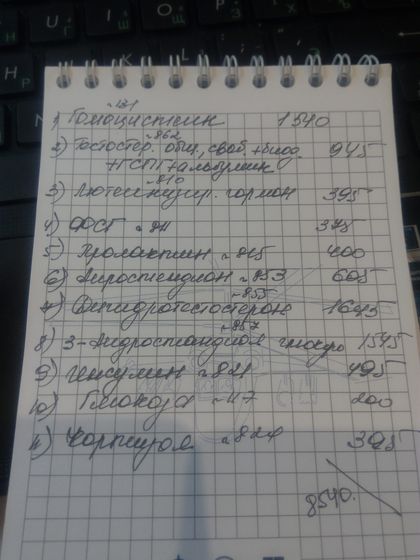 ~121
1) Гомоцистеин 1540
~862
2) Тестостер. общ, своб +биод. 945
+ГСПГ+альбумин
~810
3) Лютеинизир. гормон 395
4) ФСГ ~811 375
5) Пролактин ~815 400
6) Андростендион ~853 605
~855
7) Дигидротестостерон 1645
~857
8) 3-андростандиол глюкур 1545
9) Инсулин ~821 495
10) Глюкоза ~117 200
11) Кортизол ~826 395
8540.